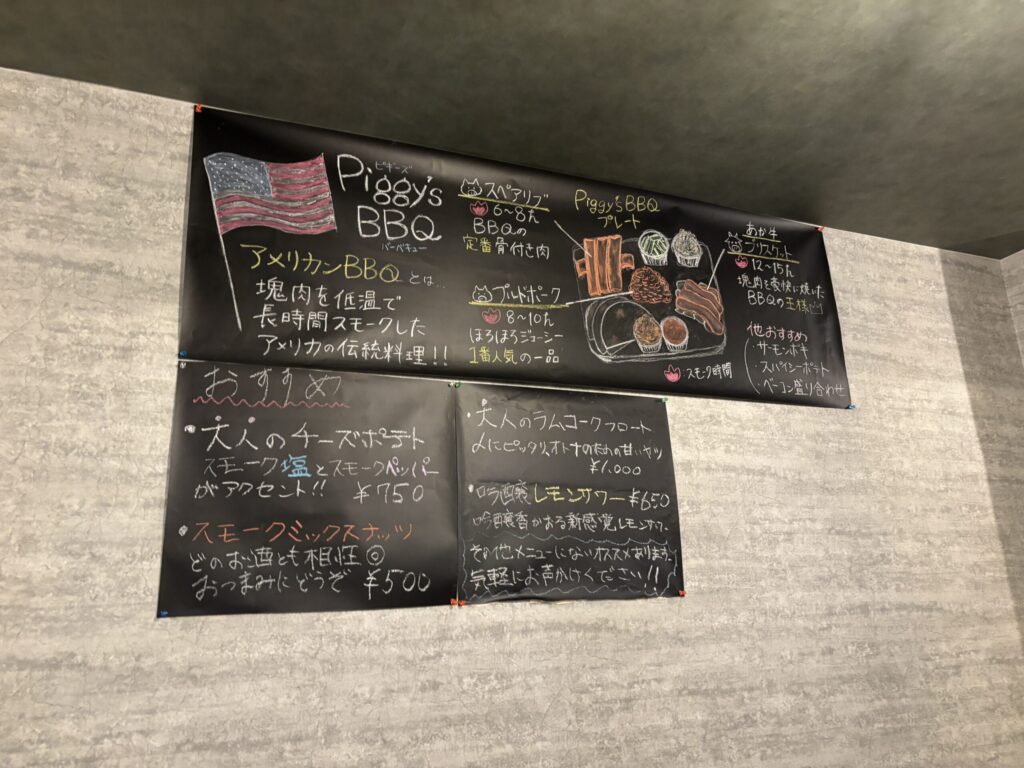 ピギーズ
Piggy's
BBQ
バーベキュー
アメリカンBBQとは...
塊肉を低温で
長時間スモークした
アメリカの伝統料理!!
スペアリブ
6〜8h
BBQの
定番骨付き肉
プルドポーク
8〜10h
ほろほろジューシー
1番人気の一品
Piggy'sBBQ
プレート
スモーク時間
あか牛
ブリスケット
12〜15h
塊肉を豪快に焼いた
BBQの王様
他おすすめ
・サーモンポキ
・スパイシーポテト
・ベーコン盛り合わせ
おすすめ
・大人のチーズポテト
スモーク塩とスモークペッパー
がアクセント!! ¥750
・スモークミックスナッツ
どのお酒とも相性◎
おつまみにどうぞ ¥500
・大人のラムコークフロート
〆にピッタリオトナのための甘いヤツ
¥1,000
・吟醸レモンサワー ¥650
吟醸香かおる新感覚レモンサワー
その他メニューにないオススメあります。
気軽にお声かけください!!